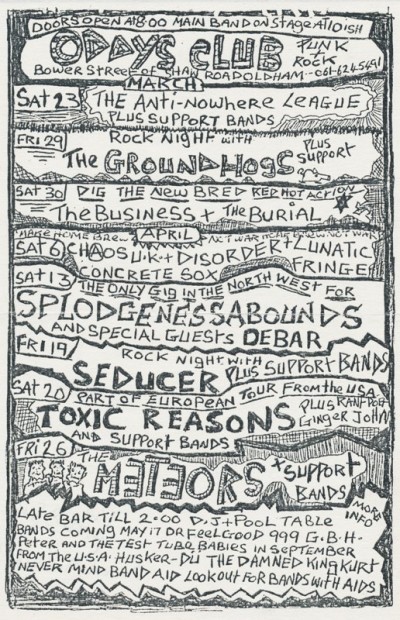 DOORS OPEN AT 8:00 MAIN BAND ON STAGE AT 10ISH
ODDYS CLUB PUNK + ROCK
BOWER STREET OF SHAW ROAD OLDHAM - 061-624-5491
MARCH
SAT 23 THE ANTI-NOWHERE LEAGUE
PLUS SUPPORT BANDS
FRI 29 ROCK NIGHT WITH
THE GROUNDHOGS PLUS SUPPORT
SAT 30 DIG THE NEW BRED RED HOT ACTION
THE BUSINESS + THE BURIAL
APRIL
SAT 6 CHAOS U.K + DISORDER + LUNATIC FRINGE
CONCRETE SOX
SAT 13 THE ONLY GIG IN THE NORTH WEST FOR
SPLODGENESSABOUNDS
AND SPECIAL GUESTS DEBAR
FRI 19 ROCK NIGHT WITH
SEDUCER PLUS SUPPORT BANDS
SAT 20 PART OF EUROPEAN TOUR FROM THE USA
TOXIC REASONS PLUS RANT POET GINGER JOHN
AND SUPPORT BANDS
FRI 26 THE
METEORS + SUPPORT BANDS
MORE INFO
LATE BAR TILL 2:00 D.J + POOL TABLE
BANDS COMING MAY 17 DR FEELGOOD 999 G.B.H-
PETER AND THE TEST TUBE BABIES IN SEPTEMBER
FROM THE U.S.A. HUSKER-DU THE DAMNED KING KURT
NEVER MIND BAND AID LOOKOUT FOR BANDS WITH AIDS